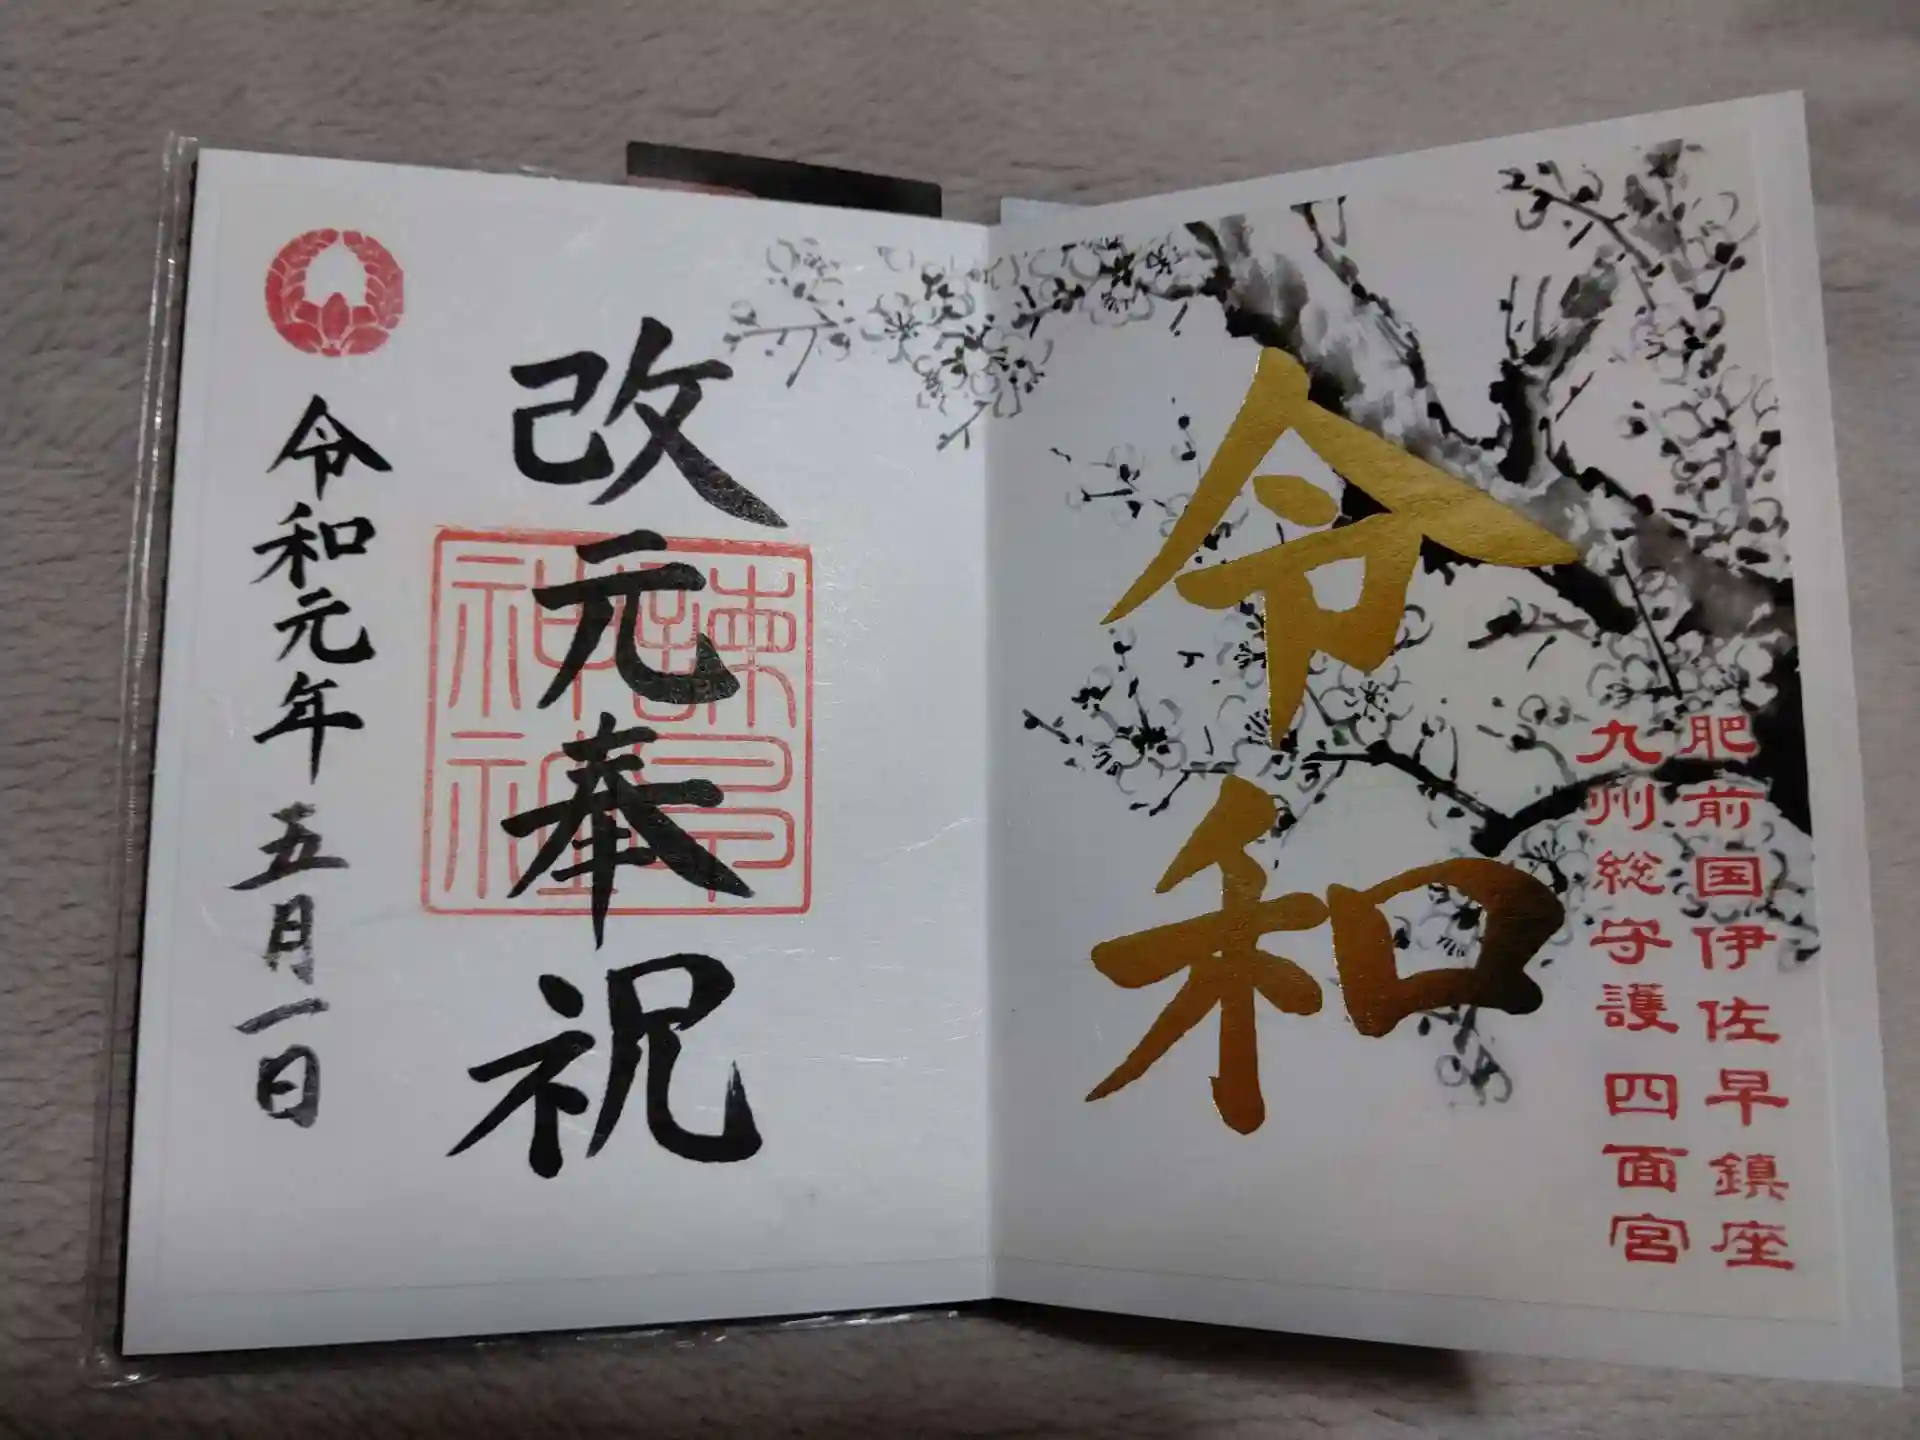 肥前国伊佐早鎮座
九州総守護 四面宮
令和
改元奉祝
諫早神社
令和元年 五月一日